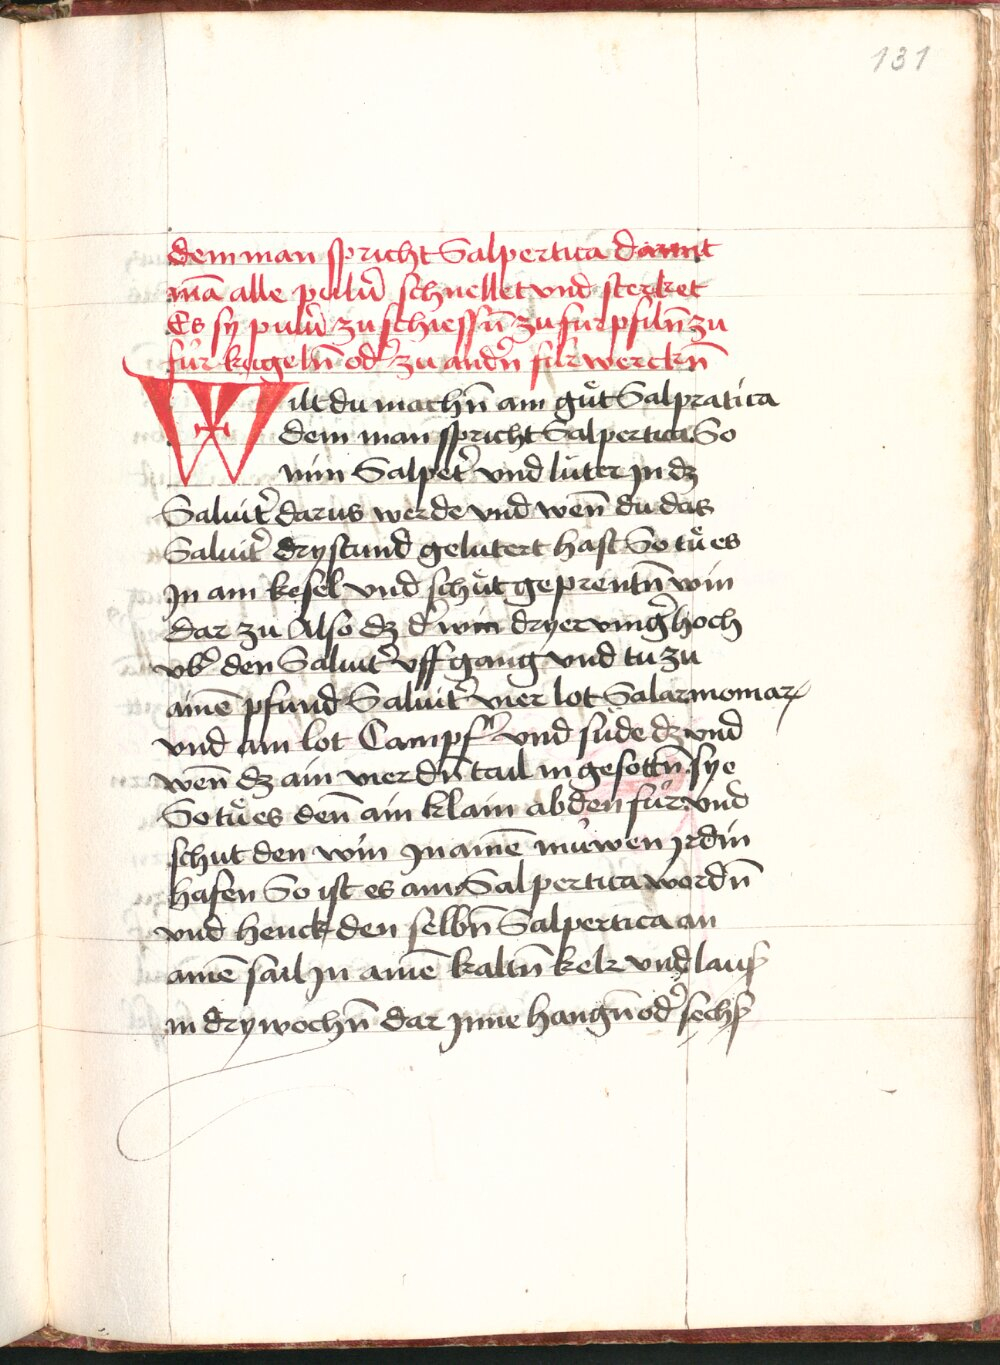 131
dem man spricht Salpertica damit
mā alle pulũ schnellet vnd sterket
Es sy pulũ zu schiessñ zu fúrpfilñ zu
fúr kugelñ od̾ zu andñ fúrwerckñ
Wilt du machñ ain gůt Salpratica
dem man spricht Salpertica. So
nim Salpet̾ vnd lúter in dz
Saluit̾ darus werde vnd weñ du das
Saluit̾ drystund gelutert hast So tů es
In ain kesel vnd schút geprentñ win
dar zu Also dz d̾ win dryer ving̾ hoch
vb̾ den Saluit̾ vff gang vnd tu zu
ainē pfund Saluit̾ vier lot Salarmoniar
vnd ain lot Campf̾ vnd sude dz vnd
weñ dz ain vierdñ tail in gesottñ sye
So tů es deñ ain klain ab den fúr vnd
schut den win In ainē núwen irdin
hafen So ist es ain Salpertica wordñ
vnd henck den selbñ Salpertica an
ainē sail In ainē kaltñ kelr vnd laus
in dry wochñ dar Inne hangñ od̾ sechs